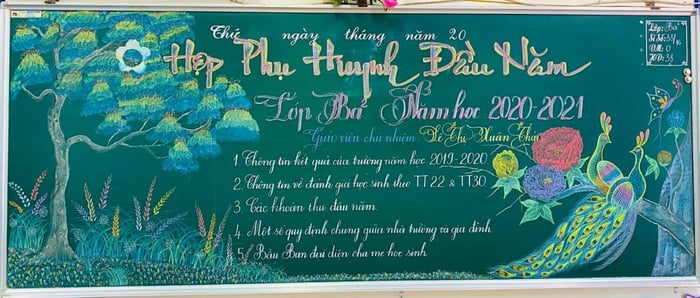 Thứ ngày tháng năm 20
Họp Phụ Huynh Đầu Năm
Lớp Ba² Năm học 2020-2021
Giáo viên chủ nhiệm: Lê Thị Xuân Thảo
1. Thông tin kết quả của trường năm học 2019-2020
2. Thông tin về đánh giá học sinh theo TT 22 & TT30
3. Các khoản thu đầu năm.
4. Một số quy định chung giữa nhà trường và gia đình.
5. Bầu Ban đại diện cha mẹ học sinh.
Lớp: Ba²
Sĩ Số: 38/16
V.M: 0
H.D: 38